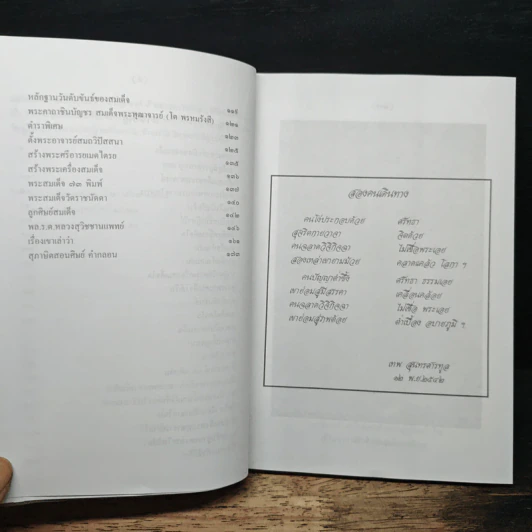 หลักฐานวันดับขันธ์ของสมเด็จ ๑๑๕
พระคาถาชินบัญชร สมเด็จพระพุฒาจารย์ (โต พรหมรังสี) ๑๒๑
ตำราพิเศษ ๑๒๓
ตั้งพระอาจารย์สมถวิปัสสนา ๑๒๕
สร้างพระศรีอารยเมตไตรย ๑๓๕
สร้างพระเครื่องสมเด็จ ๑๓๖
พระสมเด็จ ๗๓ พิมพ์ ๑๓๗
พระสมเด็จวัดราชนัดดา ๑๔๐
ลูกศิษย์สมเด็จ ๑๔๒
พล.ร.ต.หลวงสุวิชชานแพทย์ ๑๔๖
เรื่องเขาเล่าว่า ๑๖๑
สุภาษิตสอนศิษย์ คำกลอน ๑๗๓
สองคนเดินทาง
คนใดประกอบด้วย ศรัทธา
สุจริตกายวาจา จิตด้วย
คนฉลาดวิจิกิจฉา ไม่เชื่อ พระเอย
สองเหล่าพยายามม้วย คลาดแคล้ว โสภา ฯ
คนปัญญาต่ำซึ้ง ศรัทธา ธรรมเอย
เขาย่อมสู่มีสรรคา เคลื่อนคล้อย
คนฉลาดวิจิกิจฉา ไม่เชื่อ พระเอย
เขาย่อมสู่ภพต้อย ต่ำเบื้อง อบายภูมิ ฯ
เทพ สุนทรศารทูล
๑๒ พ.ย.๒๕๔๒